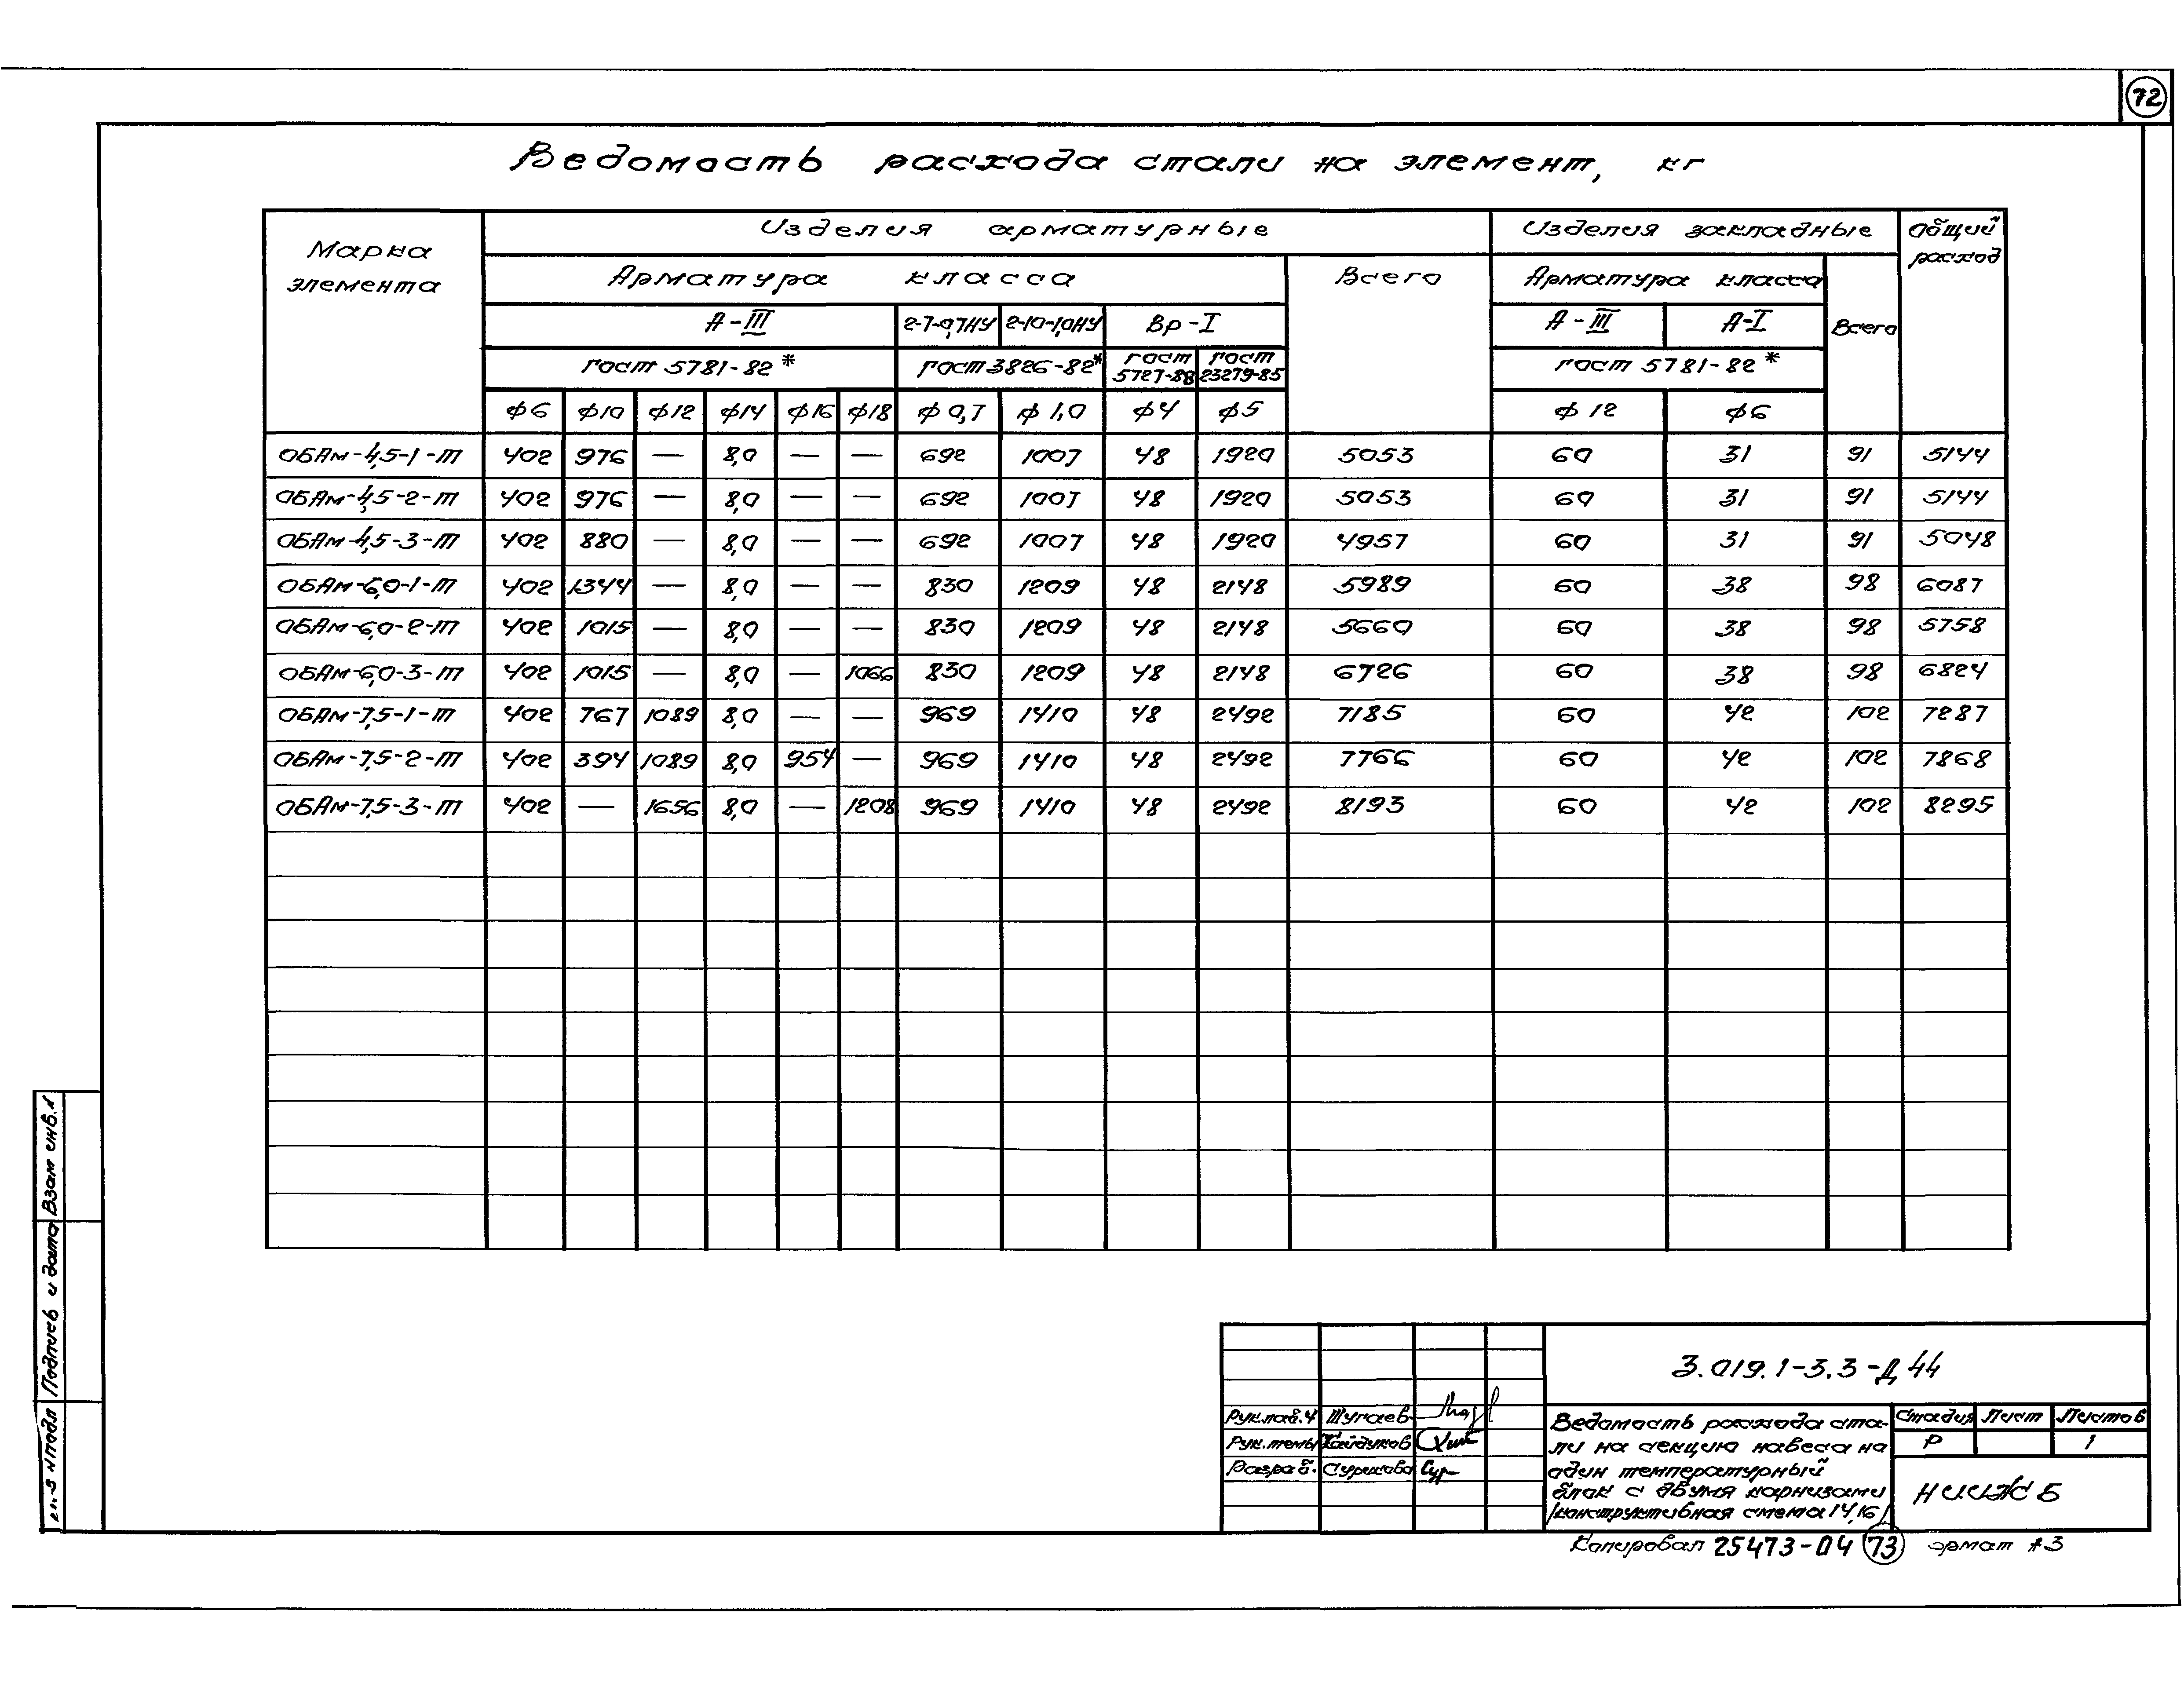 72
Ведомость расхода стали на элемент, кг
Марка элемента
Изделия арматурные
Изделия закладные
Общий расход
Арматура класса
Всего
Арматура класса
Всего
А-III
2-7-0,7НУ
2-10-1,0НУ
Вр-I
А-III
А-I
ГОСТ 5781-82*
ГОСТ 3826-82*
ГОСТ 5727-88
ГОСТ 23279-85
ГОСТ 5781-82*
ф6 ф10 ф12 ф14 ф16 ф18 ф0,7 ф1,0 ф4 ф5 ф12 ф6
ОБАм-4,5-1-т 402 976 — 8,0 — — 692 1007 48 1920 5053 60 31 91 5144
ОБАм-4,5-2-т 402 976 — 8,0 — — 692 1007 48 1920 5053 60 31 91 5144
ОБАм-4,5-3-т 402 880 — 8,0 — — 692 1007 48 1920 4957 60 31 91 5048
ОБАм-6,0-1-т 402 1344 — 8,0 — — 830 1209 48 2148 5989 60 38 98 6087
ОБАм-6,0-2-т 402 1015 — 8,0 — — 830 1209 48 2148 5660 60 38 98 5758
ОБАм-6,0-3-т 402 1015 — 8,0 — 1066 830 1209 48 2148 6726 60 38 98 6824
ОБАм-7,5-1-т 402 767 1089 8,0 — — 969 1410 48 2492 7185 60 42 102 7287
ОБАм-7,5-2-т 402 394 1089 8,0 954 — 969 1410 48 2492 7766 60 42 102 7868
ОБАм-7,5-3-т 402 — 1656 8,0 — 1208 969 1410 48 2492 8193 60 42 102 8295
Взам инв.
Подпись и дата
N подл
3.019.1-3.3-Д44
Рук.лаб.4 Шугаев
Рук.темы Гайдуков
Разраб. Сурикова
Ведомость расхода ста-
ли на секцию навеса на
один температурный
блок с двумя карнизами
/конструктивная схема 14,16/
Стадия Лист Листов
Р 1
НИИЖБ
Копировал 25473-04 73 ормат А3